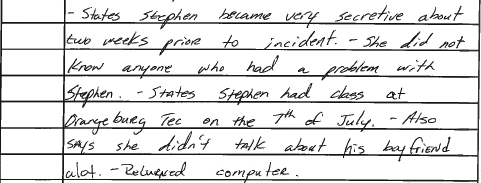 - States Stephen became very secretive about
two weeks prior to incident. - She did not
Know anyone who had a problem with
Stephen. - States Stephen had class at
Orangeburg Tec on the 7th of July. - Also
says she didn't talk about his boyfriend
alot. - Returned computer.